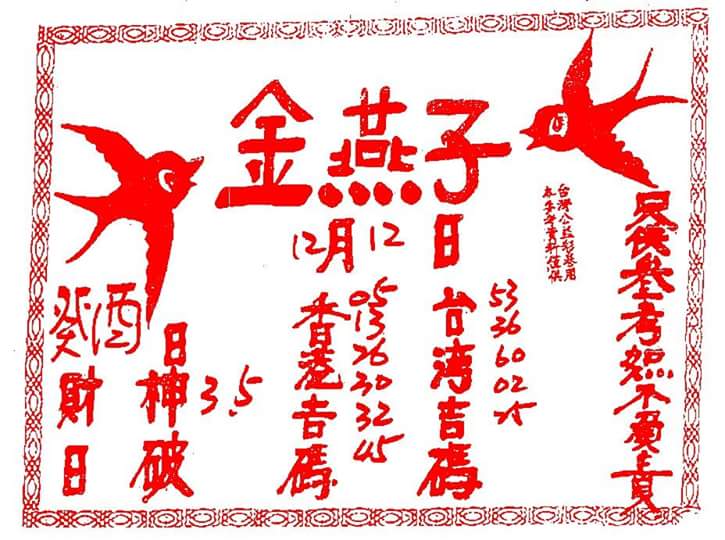 金燕子
12月12日
台灣公益彩卷用
本手冊資料僅供
只供參考恕不負責
台湾吉碼
53
36
60
02
25
香港吉碼
05
13
26
30
32
45
癸酒
日神破
3.5
財日